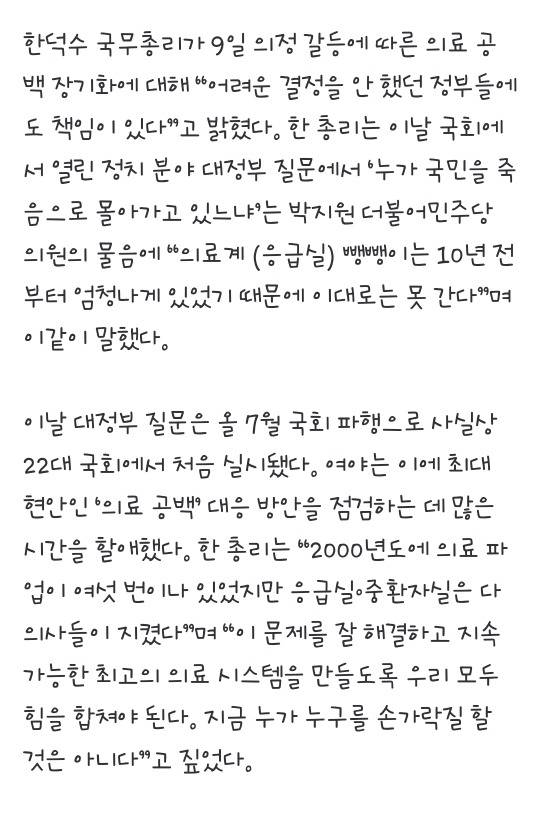 한덕수 국무총리가 9일 의정 갈등에 따른 의료 공
백 장기화에 대해 “어려운 결정을 안 했던 정부들에
도 책임이 있다”고 밝혔다. 한 총리는 이날 국회에
서 열린 정치 분야 대정부 질문에서 ‘누가 국민을 죽
음으로 몰아가고 있느냐’는 박지원 더불어민주당
의원의 물음에 “의료계 (응급실) 뺑뺑이는 10년 전
부터 엄청나게 있었기 때문에 이대로는 못 간다”며
이같이 말했다.

이날 대정부 질문은 올 7월 국회 파행으로 사실상
22대 국회에서 처음 실시됐다. 여야는 이에 최대
현안인 ‘의료 공백’ 대응 방안을 점검하는 데 많은
시간을 할애했다. 한 총리는 “2000년도에 의료 파
업이 여섯 번이나 있었지만 응급실·중환자실은 다
의사들이 지켰다”며 “이 문제를 잘 해결하고 지속
가능한 최고의 의료 시스템을 만들도록 우리 모두
힘을 합쳐야 된다. 지금 누가 누구를 손가락질 할
것은 아니다”고 짚었다.